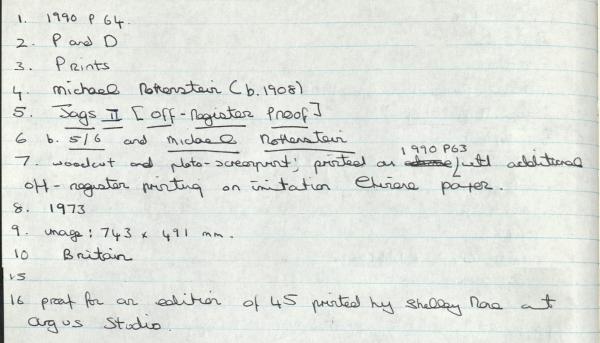 1. 1990 P 64.
2. P and D
3. Prints
4. Michael Rothenstein (b. 1908)
5. Jags II [Off-Register Proof]
6 b. 5/6 and Michael Rothenstein
1990 P63
7. woodcut and photo-screenprint; printed as / with additional
off-register printing on imitation Chinese paper.
8. 1973
9. image: 743 x 491 mm.
10 Britain
15
16 proof for an edition of 45 printed by Shelley Rose at
Argus Studio.